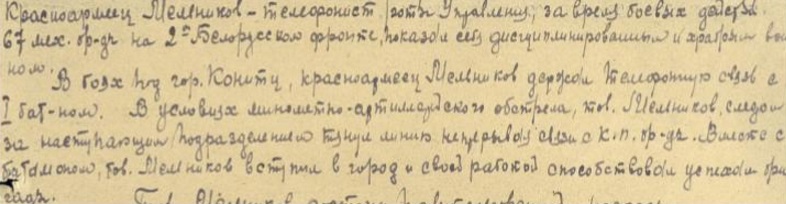 Красноармеец Мельников - телефонист роты Управления, за время боевых действ.
67 мех. бр-ды на 2м Белорусском фронте, показал себя дисциплинированным и храбрым вои
ном.
В боях под гор. Конитц, красноармеец Мельников держал телефонную связь с
I бат-ном. В условиях минометно-артиллерийского обстрела, тов. Мельников, следом
за наступающим подразделением тянул линию не прерывая связи с К.П. бр-ды. Вместе с
батальоном, тов. Мельников вступил в город и своей работой способствовал успехам бри
гады.
Тов. Мельников